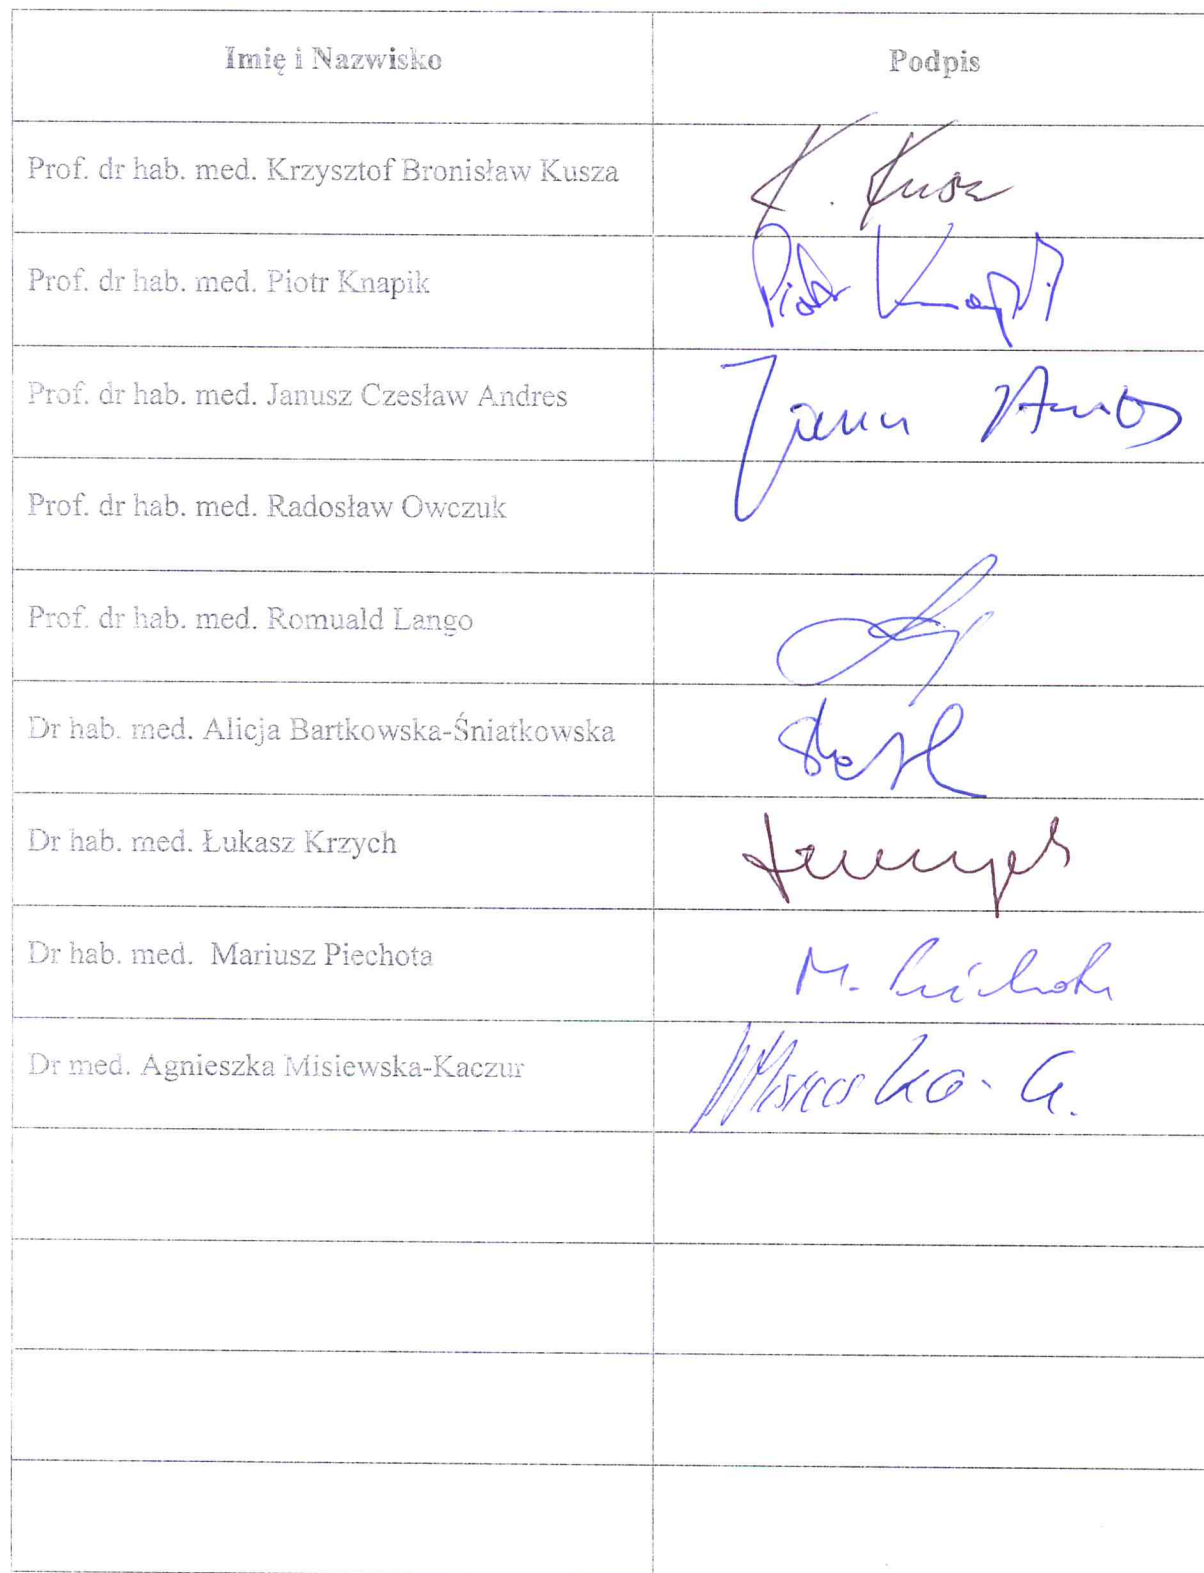 Imię i Nazwisko Podpis
Prof. dr hab. med. Krzysztof Bronisław Kusza K. Kusza
Prof. dr hab. med. Piotr Knapik Piotr Knapik
Prof. dr hab. med. Janusz Czesław Andres Janusz Andres
Prof. dr hab. med. Radosław Owczuk
Prof. dr hab. med. Romuald Lango
Dr hab. med. Alicja Bartkowska-Śniatkowska
Dr hab. med. Łukasz Krzych
Dr hab. med. Mariusz Piechota M. Piechota
Dr med. Agnieszka Misiewska-Kaczur